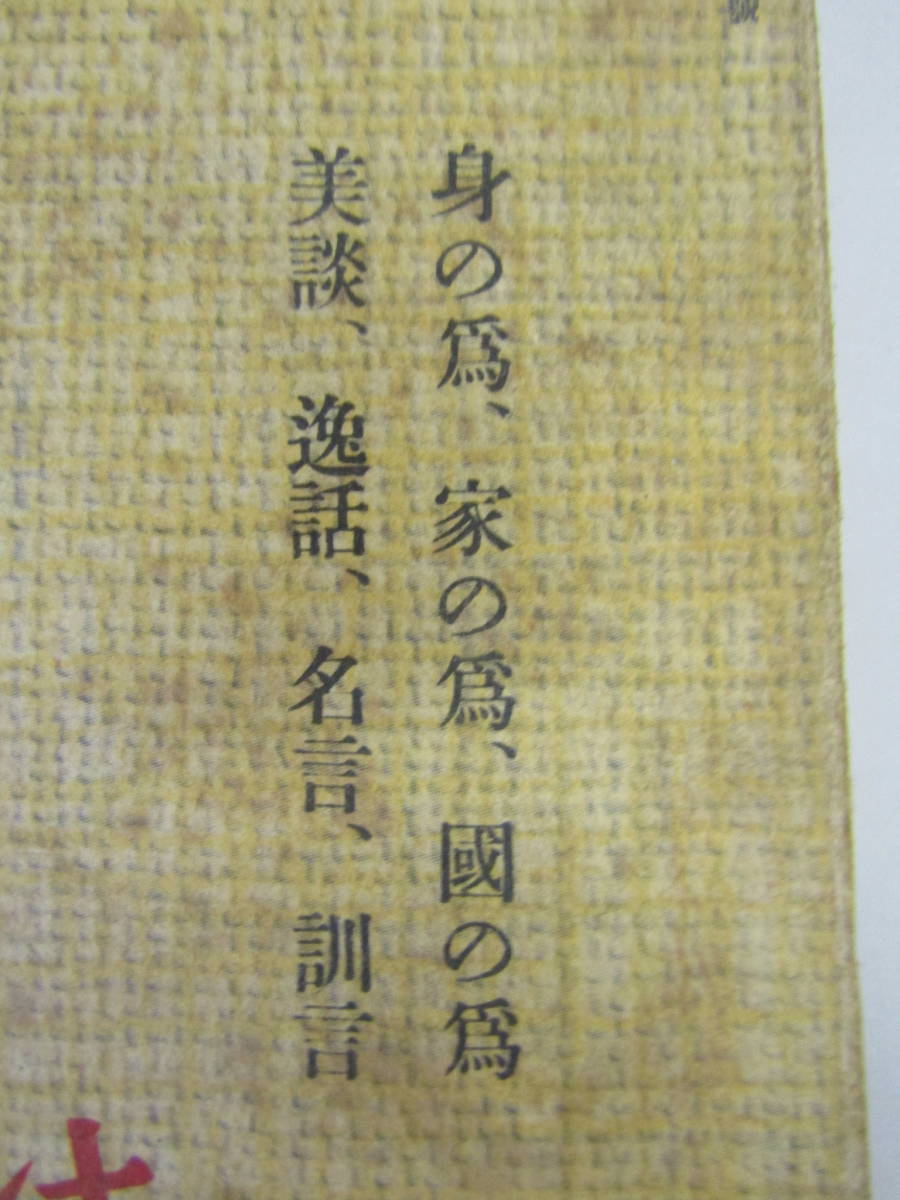 身の爲、家の爲、國の爲
美談、逸話、名言、訓言